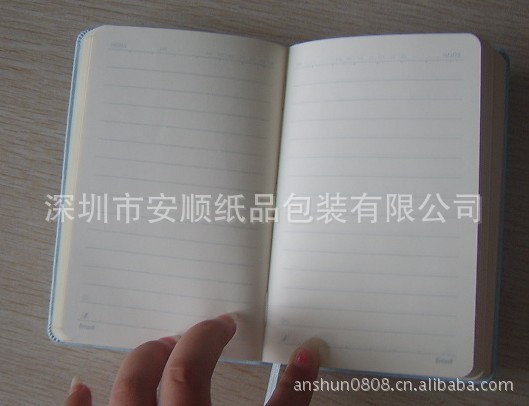 深圳市安顺纸品包装有限公司
anshun0808.cn.alibaba.com